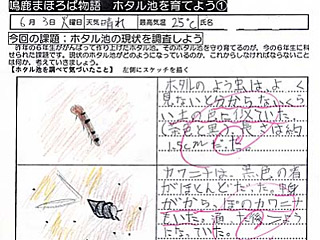 鳴鹿まほろば物語　ホタル池を育てよう①
6月3日火曜 天気晴れ 最高気温25℃ 氏名
今回の課題：ホタル池の現状を調査しよう
昨年の6年生ががんばって作り上げたホタル池。そのホタル池を守り育てるのが、今の6年生に科
せられた課題です。現状のホタル池がどのようになっているのか、これからしなければならないこと
は何か、考えていきましょう。
【ホタル池を調べて気づいたこと】 左側にスケッチを描く
ホタルのよう虫は、よく
見ないと分からないくら
いもの色に似ていた。
(茶色と黒)長さは約
1.5cmだった
カワニナは、黒色の者
がほとんどだった。中
がから、ほのカワニナ
もいた。
なっていた。